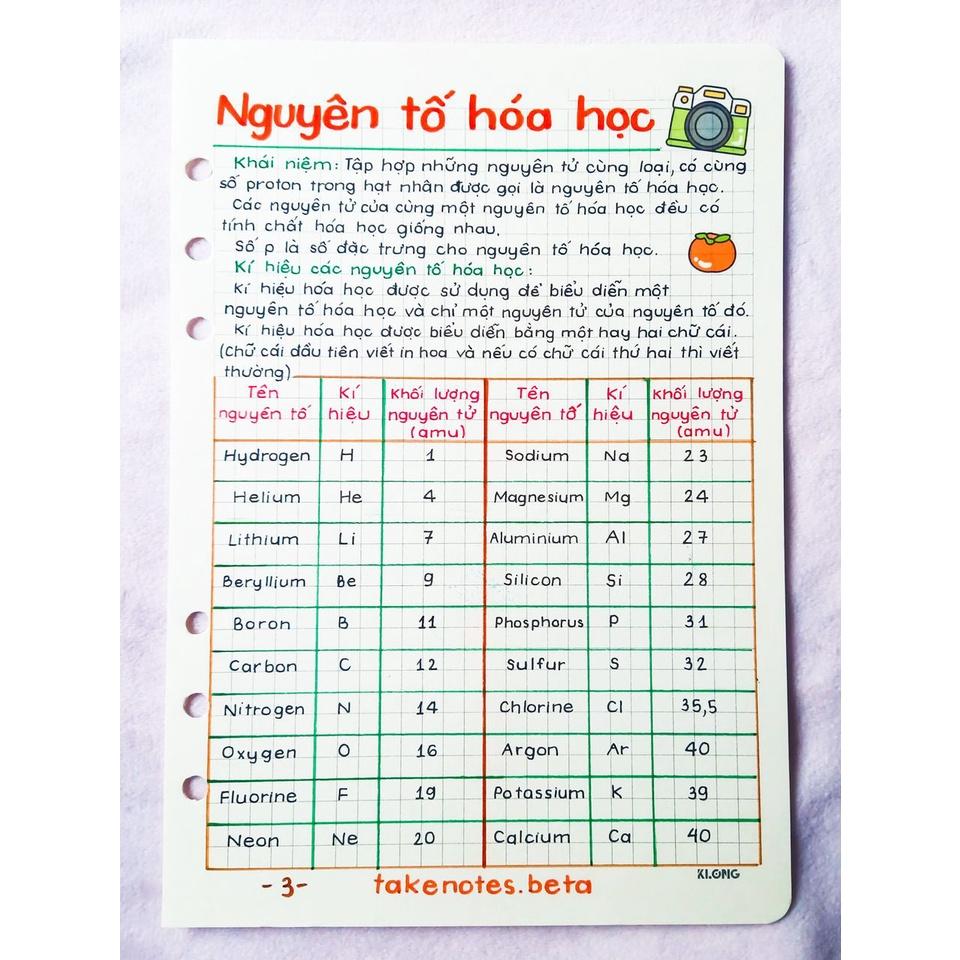 Nguyên tố hóa học
Khái niệm: Tập hợp những nguyên tử cùng loại, có cùng
số proton trong hạt nhân được gọi là nguyên tố hóa học.
Các nguyên tử của cùng một nguyên tố hóa học đều có
tính chất hóa học giống nhau.
Số p là số đặc trưng cho nguyên tố hóa học.
Kí hiệu các nguyên tố hóa học:
Kí hiệu hóa học được sử dụng để biểu diễn một
nguyên tố hóa học và chỉ một nguyên tử của nguyên tố đó.
Kí hiệu hóa học được biểu diễn bằng một hay hai chữ cái.
(Chữ cái đầu tiên viết in hoa và nếu có chữ cái thứ hai thì viết
thường)
Tên nguyên tố Kí hiệu Khối lượng nguyên tử (amu) Tên nguyên tố Kí hiệu Khối lượng nguyên tử (amu)
Hydrogen H 1 Sodium Na 23
Helium He 4 Magnesium Mg 24
Lithium Li 7 Aluminium Al 27
Beryllium Be 9 Silicon Si 28
Boron B 11 Phosphorus P 31
Carbon C 12 Sulfur S 32
Nitrogen N 14 Chlorine Cl 35,5
Oxygen O 16 Argon Ar 40
Fluorine F 19 Potassium K 39
Neon Ne 20 Calcium Ca 40
KLONG
-3- takenotes.beta